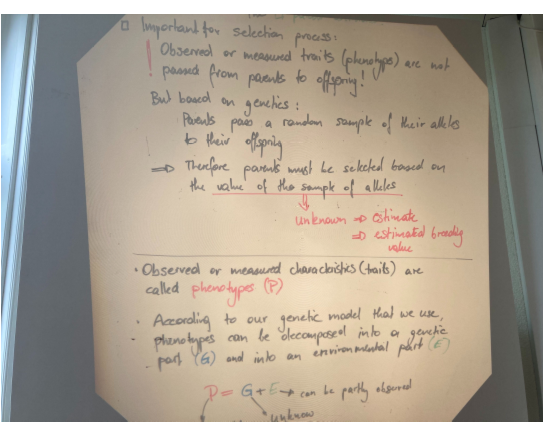 □ Important for selection process:
! Observed or measured traits (phenotype) are not
passed from parents to offspring!
But based on genetics:
Parents pass a random sample of their alleles
to their offspring
⇒ Therefore parents must be selected based on
the value of the sample of alleles
unknown ⇒ estimate
⇒ estimated breeding
value
• Observed or measured characteristics (traits) are
called phenotypes (P)
• According to our genetic model that we use,
phenotypes can be decomposed into a genetic
part (G) and into an environmental part (E)
P = G + E → can be partly observed
unknown